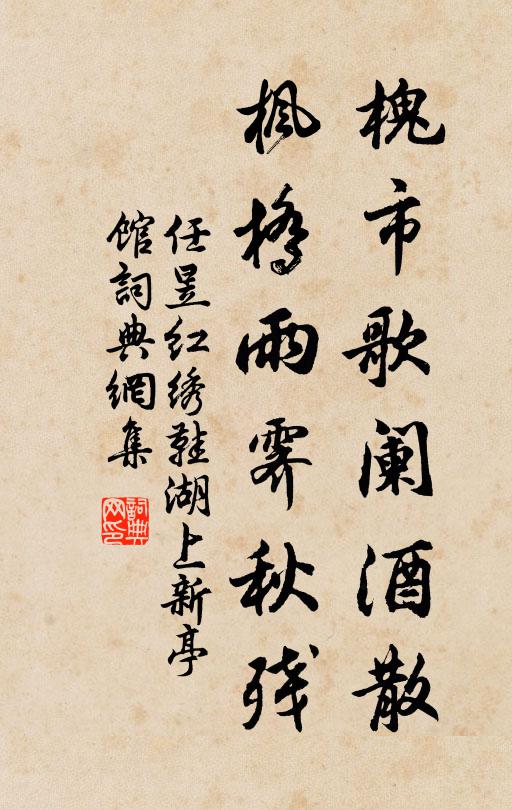 槐市歌阑酒散
枫桥雨霁秋残
任昱红绣鞋湖上新亭
馆詞典網集
詞典网印